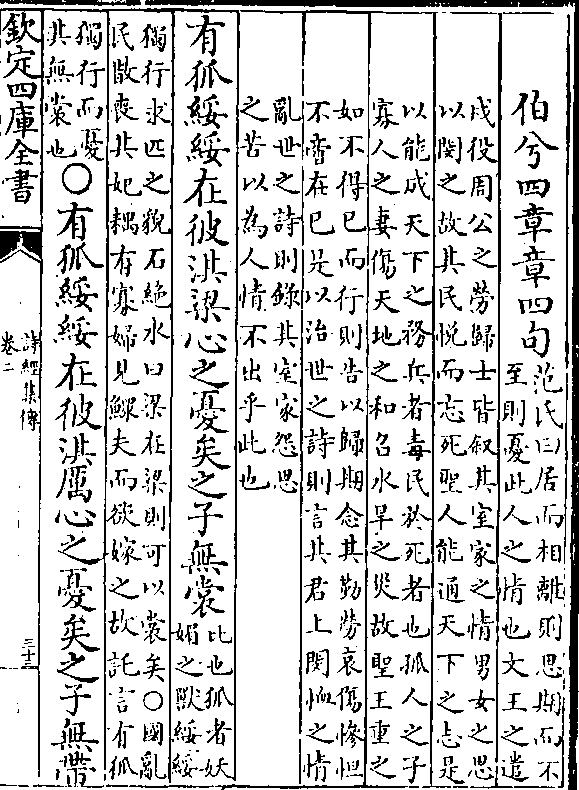 伯兮四章章四句
范氏曰居而相離則思期而不
至則憂此人之情也文王之遣
戍役周公之勞歸士皆叙其室家之情男女之思
以閔之故其民恱而忘死聖人能通天下之志是
以能成天下之務兵者毒民於死者也孤人之子
寡人之妻傷天地之和召水旱之災故聖王重之
如不得已而行則告以歸期念其勤勞哀傷慘怛
不啻在已是以治世之詩則言其君上閔恤之情
亂世之詩則錄其室家怨思
之苦以為人情不出乎此也
有狐綏綏在彼淇梁心之憂矣之子無裳
比也狐者妖
媚之獸綏綏
獨行求匹之貌石絶水曰梁在梁則可以裳矣○國亂
民散喪其妃耦有寡婦見鰥夫而欲嫁之故託言有狐
獨行而憂
其無裳也
○有狐綏綏在彼淇厲心之憂矣之子無帶
欽定四庫全書
詩經集傳
卷二
三十三